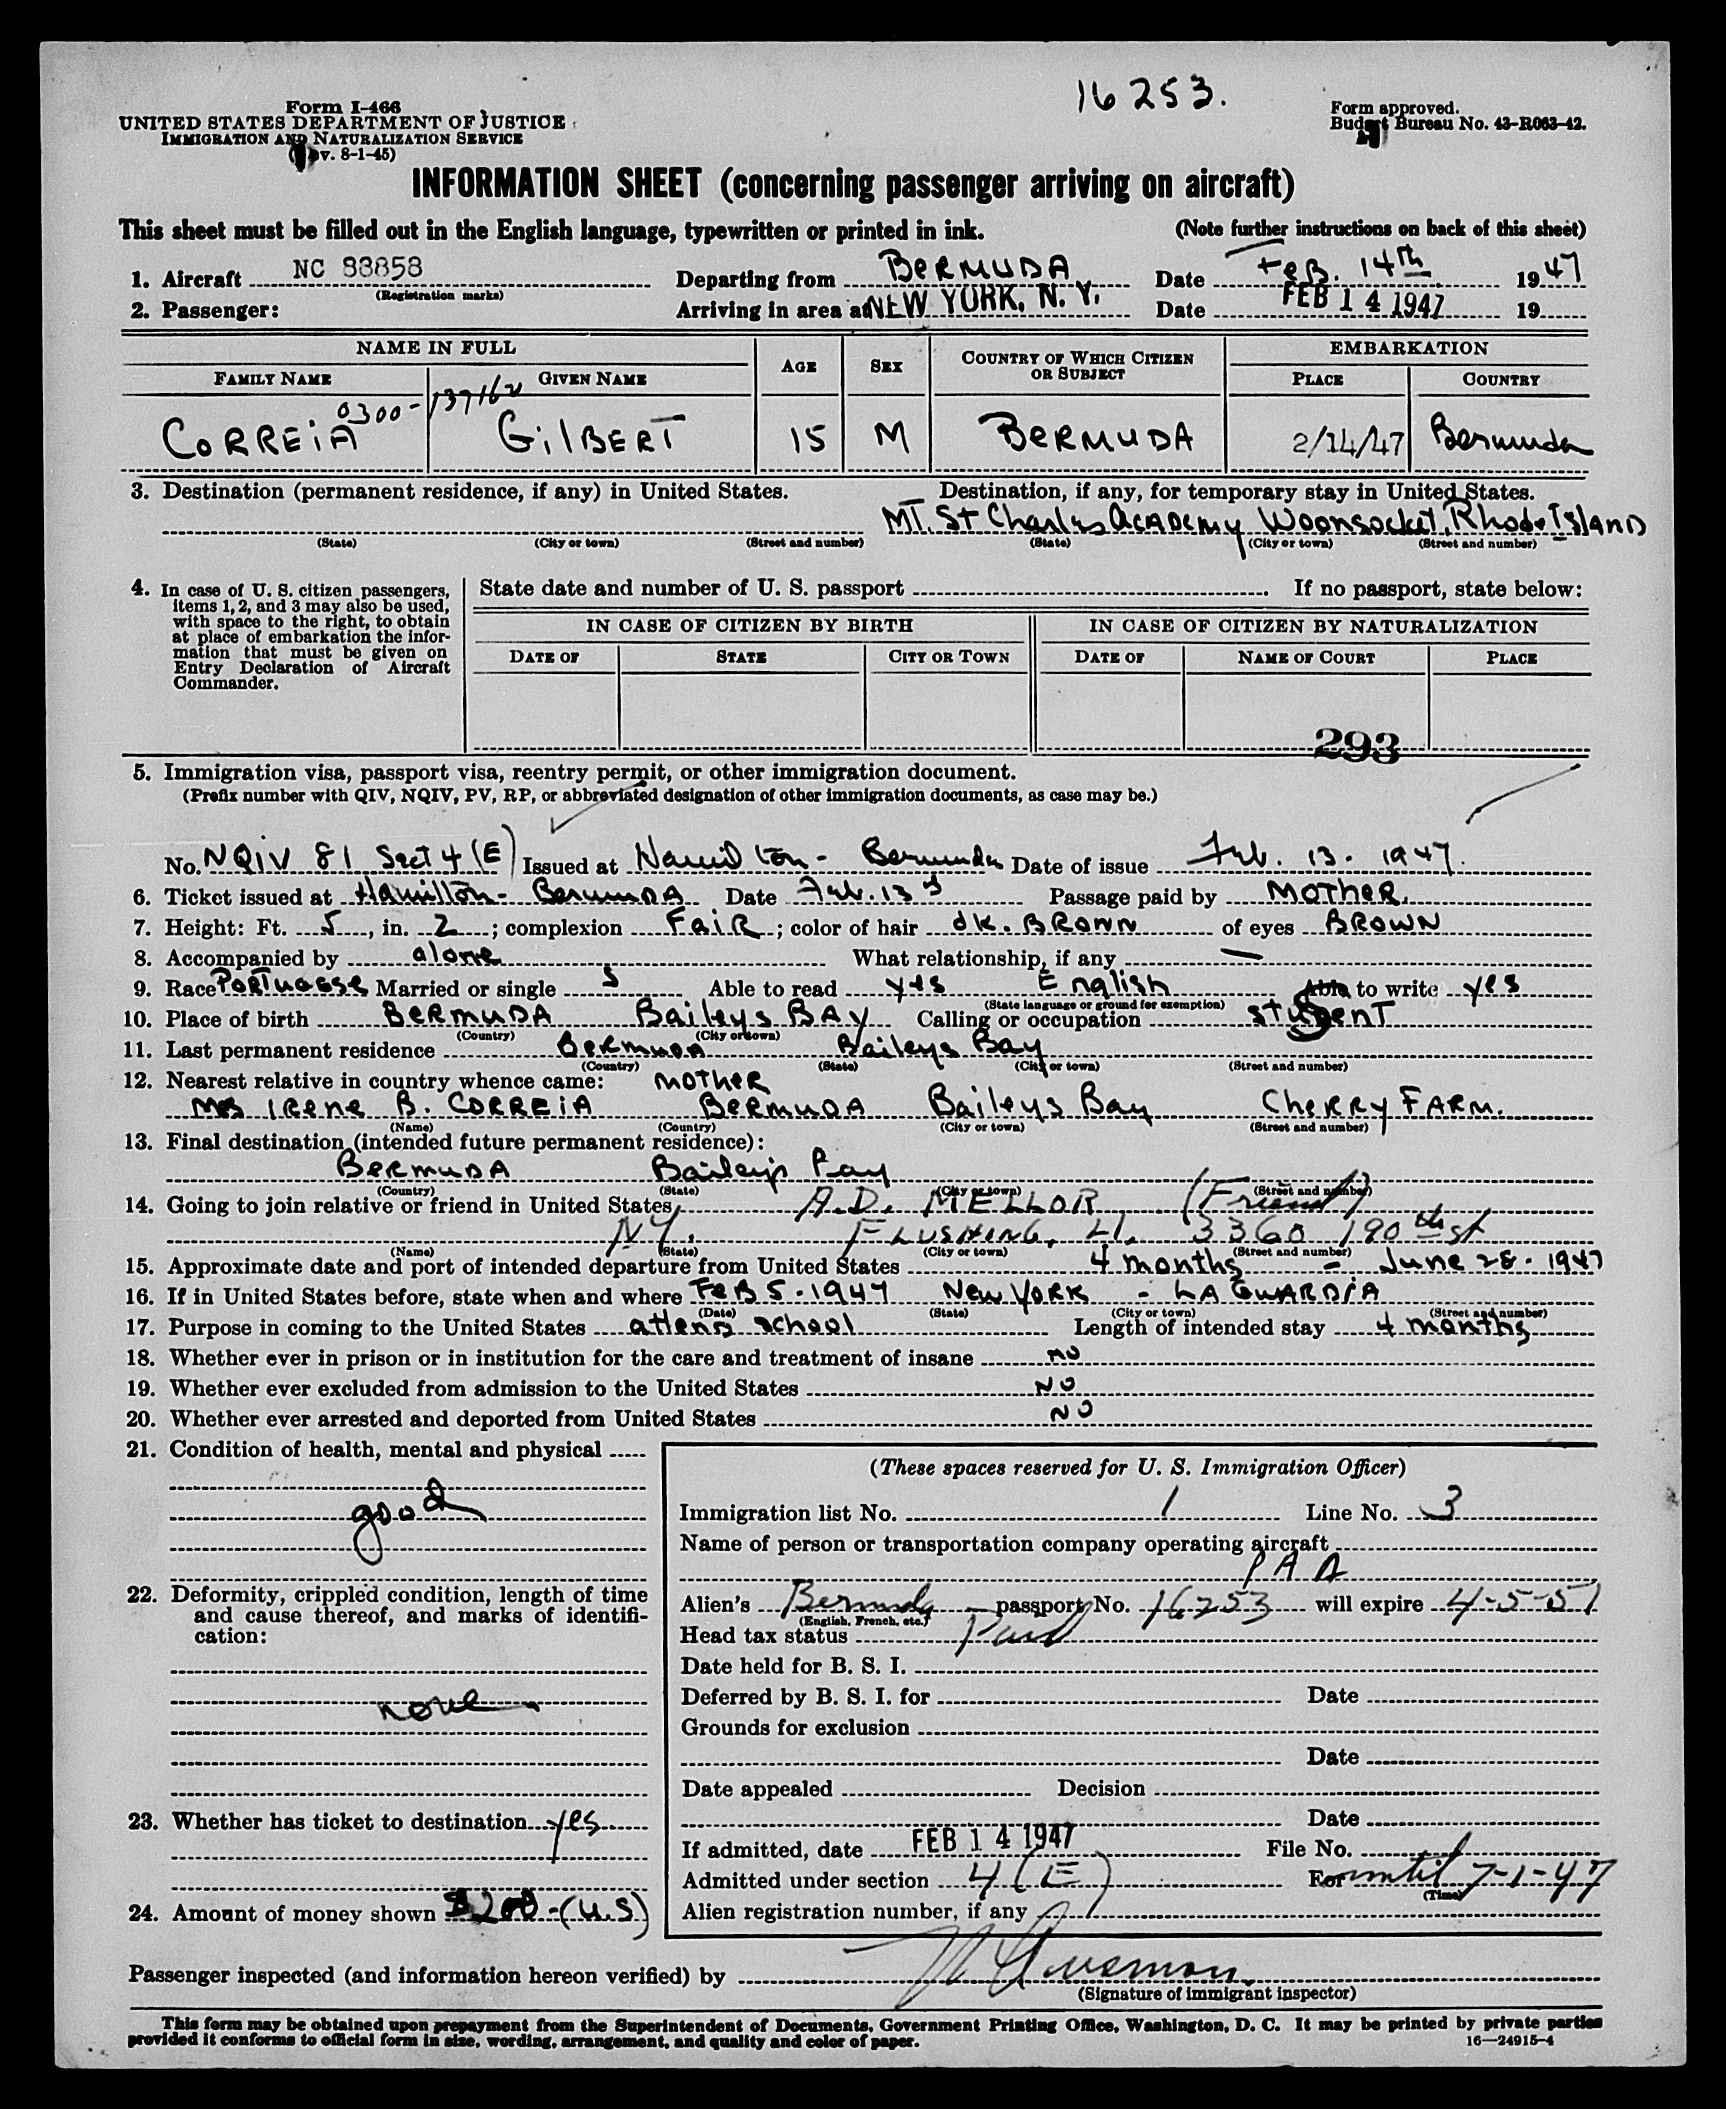 16253.
Form I-466
UNITED STATES DEPARTMENT OF JUSTICE
IMMIGRATION AND NATURALIZATION SERVICE
(Rev. 8-1-45)
Form approved.
Budget Bureau No. 43-R063-42.
INFORMATION SHEET (concerning passenger arriving on aircraft)
This sheet must be filled out in the English language, typewritten or printed in ink. (Note further instructions on back of this sheet)
1. Aircraft NC 88858 Departing from BERMUDA Date FEB. 14th 1947
(Registration marks)
2. Passenger: Arriving in area at NEW YORK, N. Y. Date FEB 14 1947 19
NAME IN FULL AGE SEX COUNTRY OF WHICH CITIZEN OR SUBJECT EMBARKATION
FAMILY NAME GIVEN NAME PLACE COUNTRY
0300-137162
CORREIA GILBERT 15 M BERMUDA 2/14/47 Bermuda
3. Destination (permanent residence, if any) in United States. Destination, if any, for temporary stay in United States.
MT. St Charles ACADEMY Woonsocket, Rhode ISLAND
(State) (City or town) (Street and number) (State) (City or town) (Street and number)
4. In case of U. S. citizen passengers, items 1, 2, and 3 may also be used, with space to the right, to obtain at place of embarkation the information that must be given on Entry Declaration of Aircraft Commander.
State date and number of U. S. passport If no passport, state below:
IN CASE OF CITIZEN BY BIRTH IN CASE OF CITIZEN BY NATURALIZATION
DATE OF STATE CITY OR TOWN DATE OF NAME OF COURT PLACE
293
5. Immigration visa, passport visa, reentry permit, or other immigration document.
(Prefix number with QIV, NQIV, PV, RP, or abbreviated designation of other immigration documents, as case may be.)
No. NQIV 81 Sect 4 (E) Issued at Hamilton - Bermuda Date of issue Feb. 13. 1947.
6. Ticket issued at Hamilton - BermuDA Date Feb. 13 Passage paid by MOTHER.
7. Height: Ft. 5, in. 2; complexion FAIR; color of hair dK. BROWN of eyes BROWN
8. Accompanied by alone What relationship, if any —
9. Race PORTUGESE Married or single S Able to read yes English Able to write yes
(State language or ground for exemption)
10. Place of birth BERMUDA Baileys BAY Calling or occupation STUDENT
(Country) (City or town)
11. Last permanent residence BERMUDA Baileys Bay
(Country) (State) (City or town) (Street and number)
12. Nearest relative in country whence came: MOTHER
MRS IRENE B. CORREIA BERMUDA Baileys Bay CHERRY FARM.
(Name) (Country) (City or town) (Street and number)
13. Final destination (intended future permanent residence):
BERMUDA Baileys Bay
(Country) (State) (City or town) (Street and number)
14. Going to join relative or friend in United States, A.D. MELLOR (Friend)
NY. FLUSHING, LI. 3360 190th St
(Name) (State) (City or town) (Street and number)
15. Approximate date and port of intended departure from United States 4 months - June 28. 1947
16. If in United States before, state when and where FEB 5 - 1947 NEW YORK - LA GUARDIA
(Date) (State) (City or town) (Street and number)
17. Purpose in coming to the United States attend school Length of intended stay 4 months
18. Whether ever in prison or in institution for the care and treatment of insane NO
19. Whether ever excluded from admission to the United States NO
20. Whether ever arrested and deported from United States NO
21. Condition of health, mental and physical
good
22. Deformity, crippled condition, length of time and cause thereof, and marks of identification:
none
23. Whether has ticket to destination yes
24. Amount of money shown $200 - (U.S)
(These spaces reserved for U. S. Immigration Officer)
Immigration list No. 1 Line No. 3
Name of person or transportation company operating aircraft
PAA
Alien's Bermuda passport No. 16253 will expire 4-5-51
(English, French, etc.)
Head tax status Paid
Date held for B. S. I.
Deferred by B. S. I. for Date
Grounds for exclusion
Date
Date appealed Decision
Date
If admitted, date FEB 14 1947 File No.
Admitted under section 4 (E) For until 7-1-47
(Time)
Alien registration number, if any
Passenger inspected (and information hereon verified) by
(Signature of immigrant inspector)
This form may be obtained upon prepayment from the Superintendent of Documents, Government Printing Office, Washington, D. C. It may be printed by private parties
provided it conforms to official form in size, wording, arrangement, and quality and color of paper. 16—24915-4